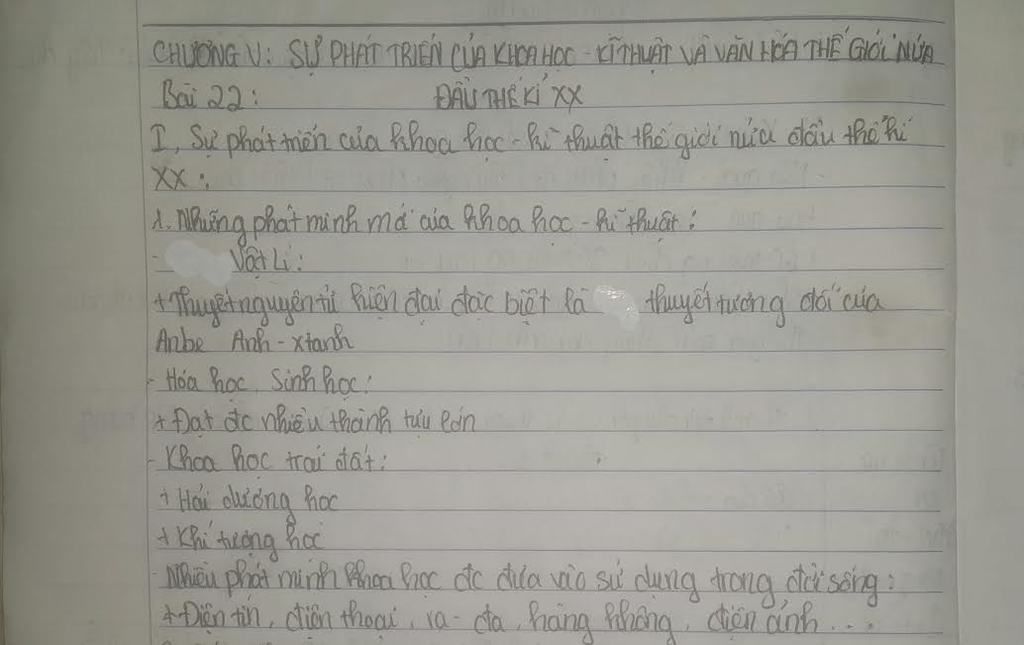 CHƯƠNG V: SỰ PHÁT TRIỂN CỦA KHOA HỌC - KĨ THUẬT VÀ VĂN HÓA THẾ GIỚI NỬA
Bài 22: ĐẦU THẾ KỈ XX
I, Sự phát triển của khoa học - kĩ thuật thế giới nửa đầu thế kỉ
XX:
1. Những phát minh mới của khoa học - kĩ thuật:
- Vật Lí:
+ Thuyết nguyên tử hiện đại đặc biệt là thuyết tương đối của
Anbe Anh-xtanh
- Hóa học, Sinh học:
+ Đạt đc nhiều thành tựu lớn
- Khoa học trái đất:
+ Hải dương học
+ Khí tượng học
- Nhiều phát minh khoa học đc đưa vào sử dụng trong đời sống:
+ Điện tín, điện thoại, ra-đa, hàng không, điện ảnh...